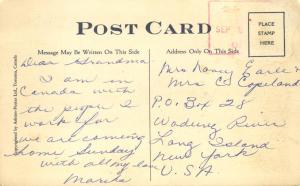 POST CARD
Message May Be Written On This Side
Address Only On This Side
PLACE
STAMP
HERE
SEP
Dear Grandma
I am in
Canada with
the people I
work for
we are coming
home Sunday
with all my love
Marsha
Mrs Nancy Earle &
Mrs C Copeland
P.O. Box 28
Wading River
Long Island
New York
U.S.A